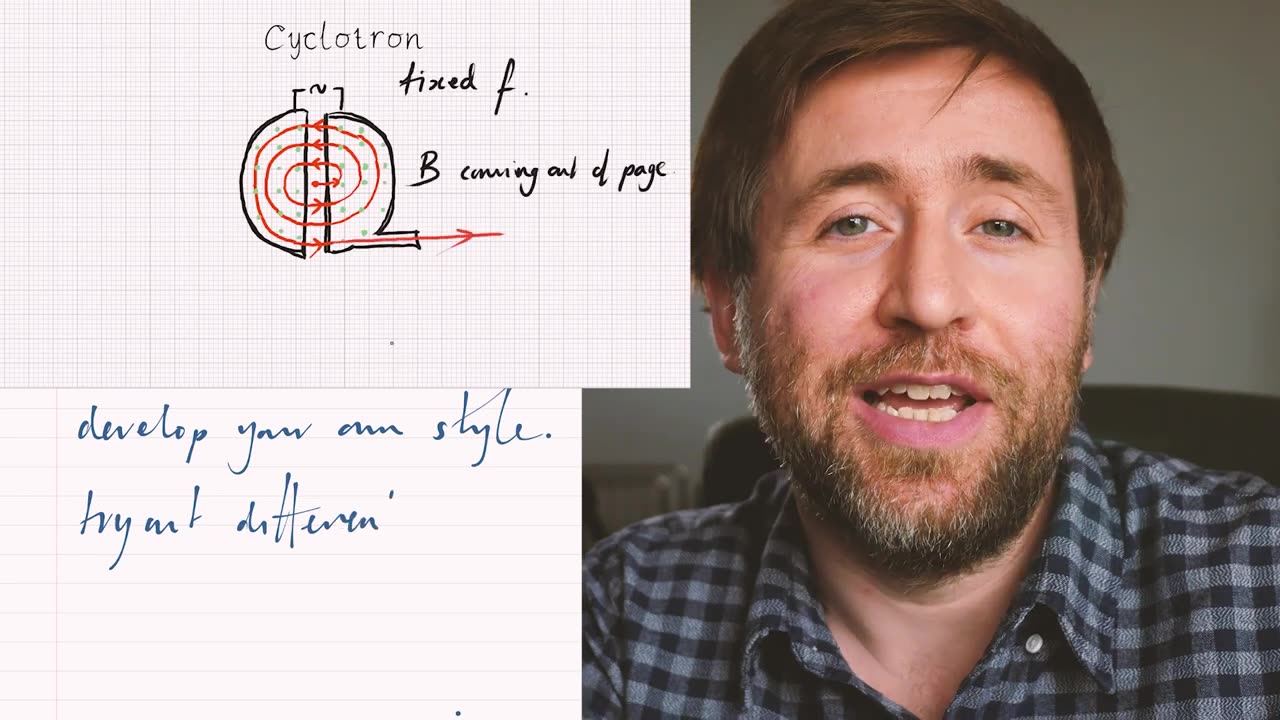 Cyclotron
~
fixed f.
B coming out of page
develop your own style.
try out differen